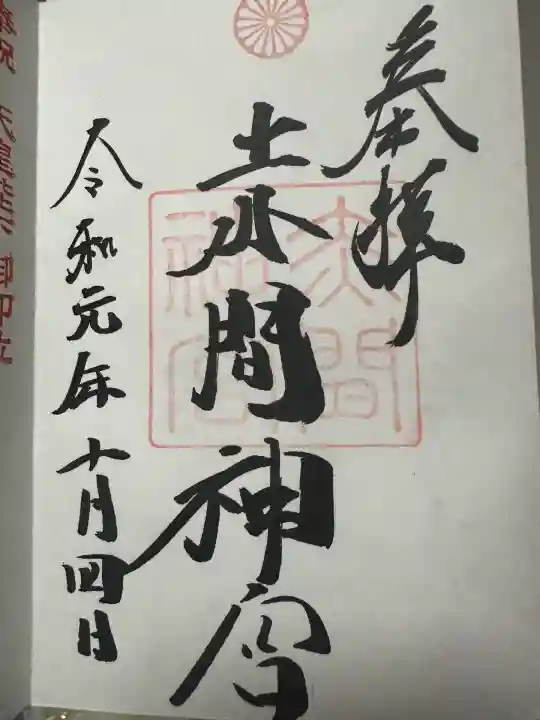 奉拝
赤間神宮
赤間
神宮
令和元年十月四日
奉祝 天皇陛下 御即位